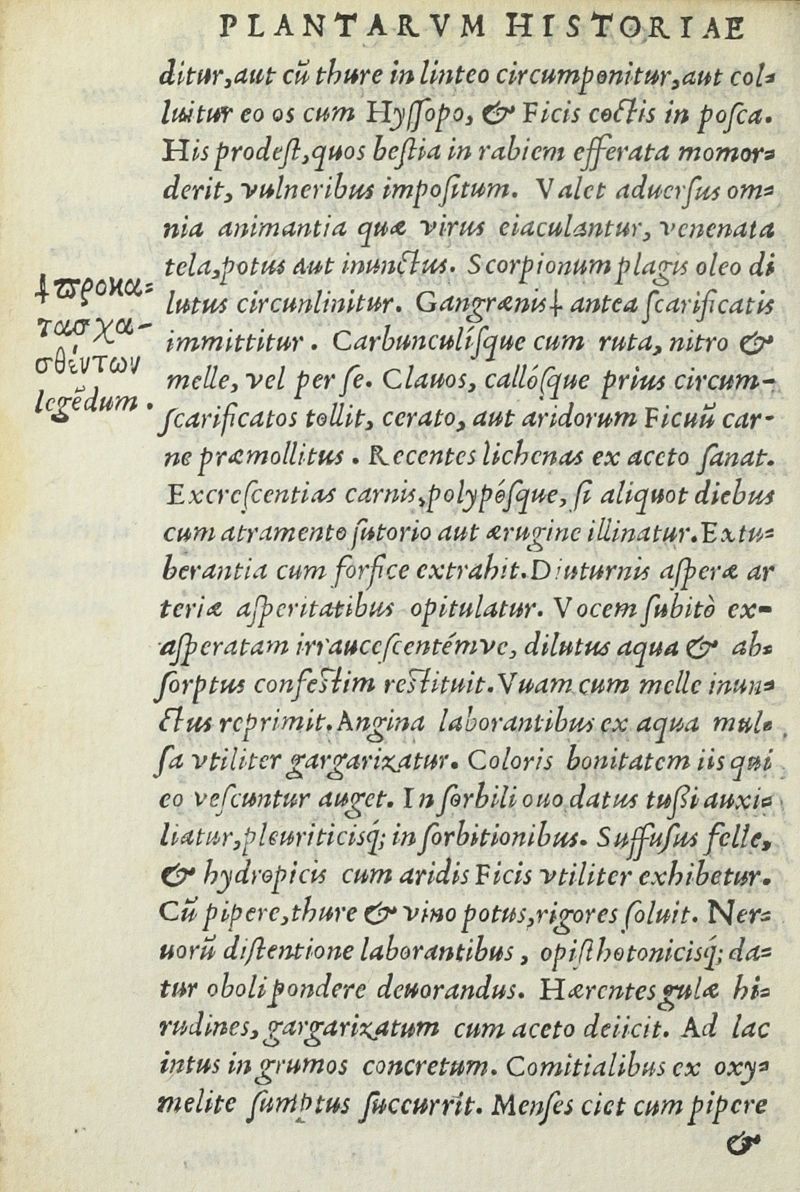 PLANTARVM HISTORIAE
ditur, aut cū thure in linteo circumponitur, aut col-
luitur eo os cum Hyssopo, & Ficis coctis in posca.
His prodest, quos bestia in rabiem efferata momor-
derit, vulneribus impositum. Valet aduersus om-
nia animantia quæ virus eiaculantur, venenata
tela, potus aut inunctus. Scorpionum plagis oleo di
lutus circunlinitur. Gangrænis ⸸ antea scarificatis
immittitur. Carbunculísque cum ruta, nitro &
melle, vel per se. Clauos, callósque prius circum-
scarificatos tollit, cerato, aut aridorum Ficuū car-
ne præmollitus. Recentes lichenas ex aceto sanat.
Excrescentias carnis, polypósque, si aliquot diebus
cum atramento sutorio aut ærugine illinatur. Extu-
berantia cum forfice extrahit. Diuturnis asperæ ar
teriæ asperitatibus opitulatur. Vocem subitò ex-
asperatam irraucescentémve, dilutus aqua & ab-
sorptus confestim restituit. Vuam cum melle inun-
ctus reprimit. Angina laborantibus ex aqua mul-
sa vtiliter gargarizatur. Coloris bonitatem iis qui
eo vescuntur auget. In sorbili ouo datus tussi auxi-
liatur, pleuriticisq́; in sorbitionibus. Suffusus felle,
& hydropicis cum aridis Ficis vtiliter exhibetur.
Cū pipere, thure & vino potus, rigores soluit. Ner-
uorū distentione laborantibus, opisthotonicisq́; da-
tur oboli pondere deuorandus. Hærentes gulæ hi-
rudines, gargarizatum cum aceto deiicit. Ad lac
intus in grumos concretum. Comitialibus ex oxy-
melite sumptus succurrit. Menses ciet cum pipere
&
⸸ προκα-
τασχα-
σθέντων
legēdum.